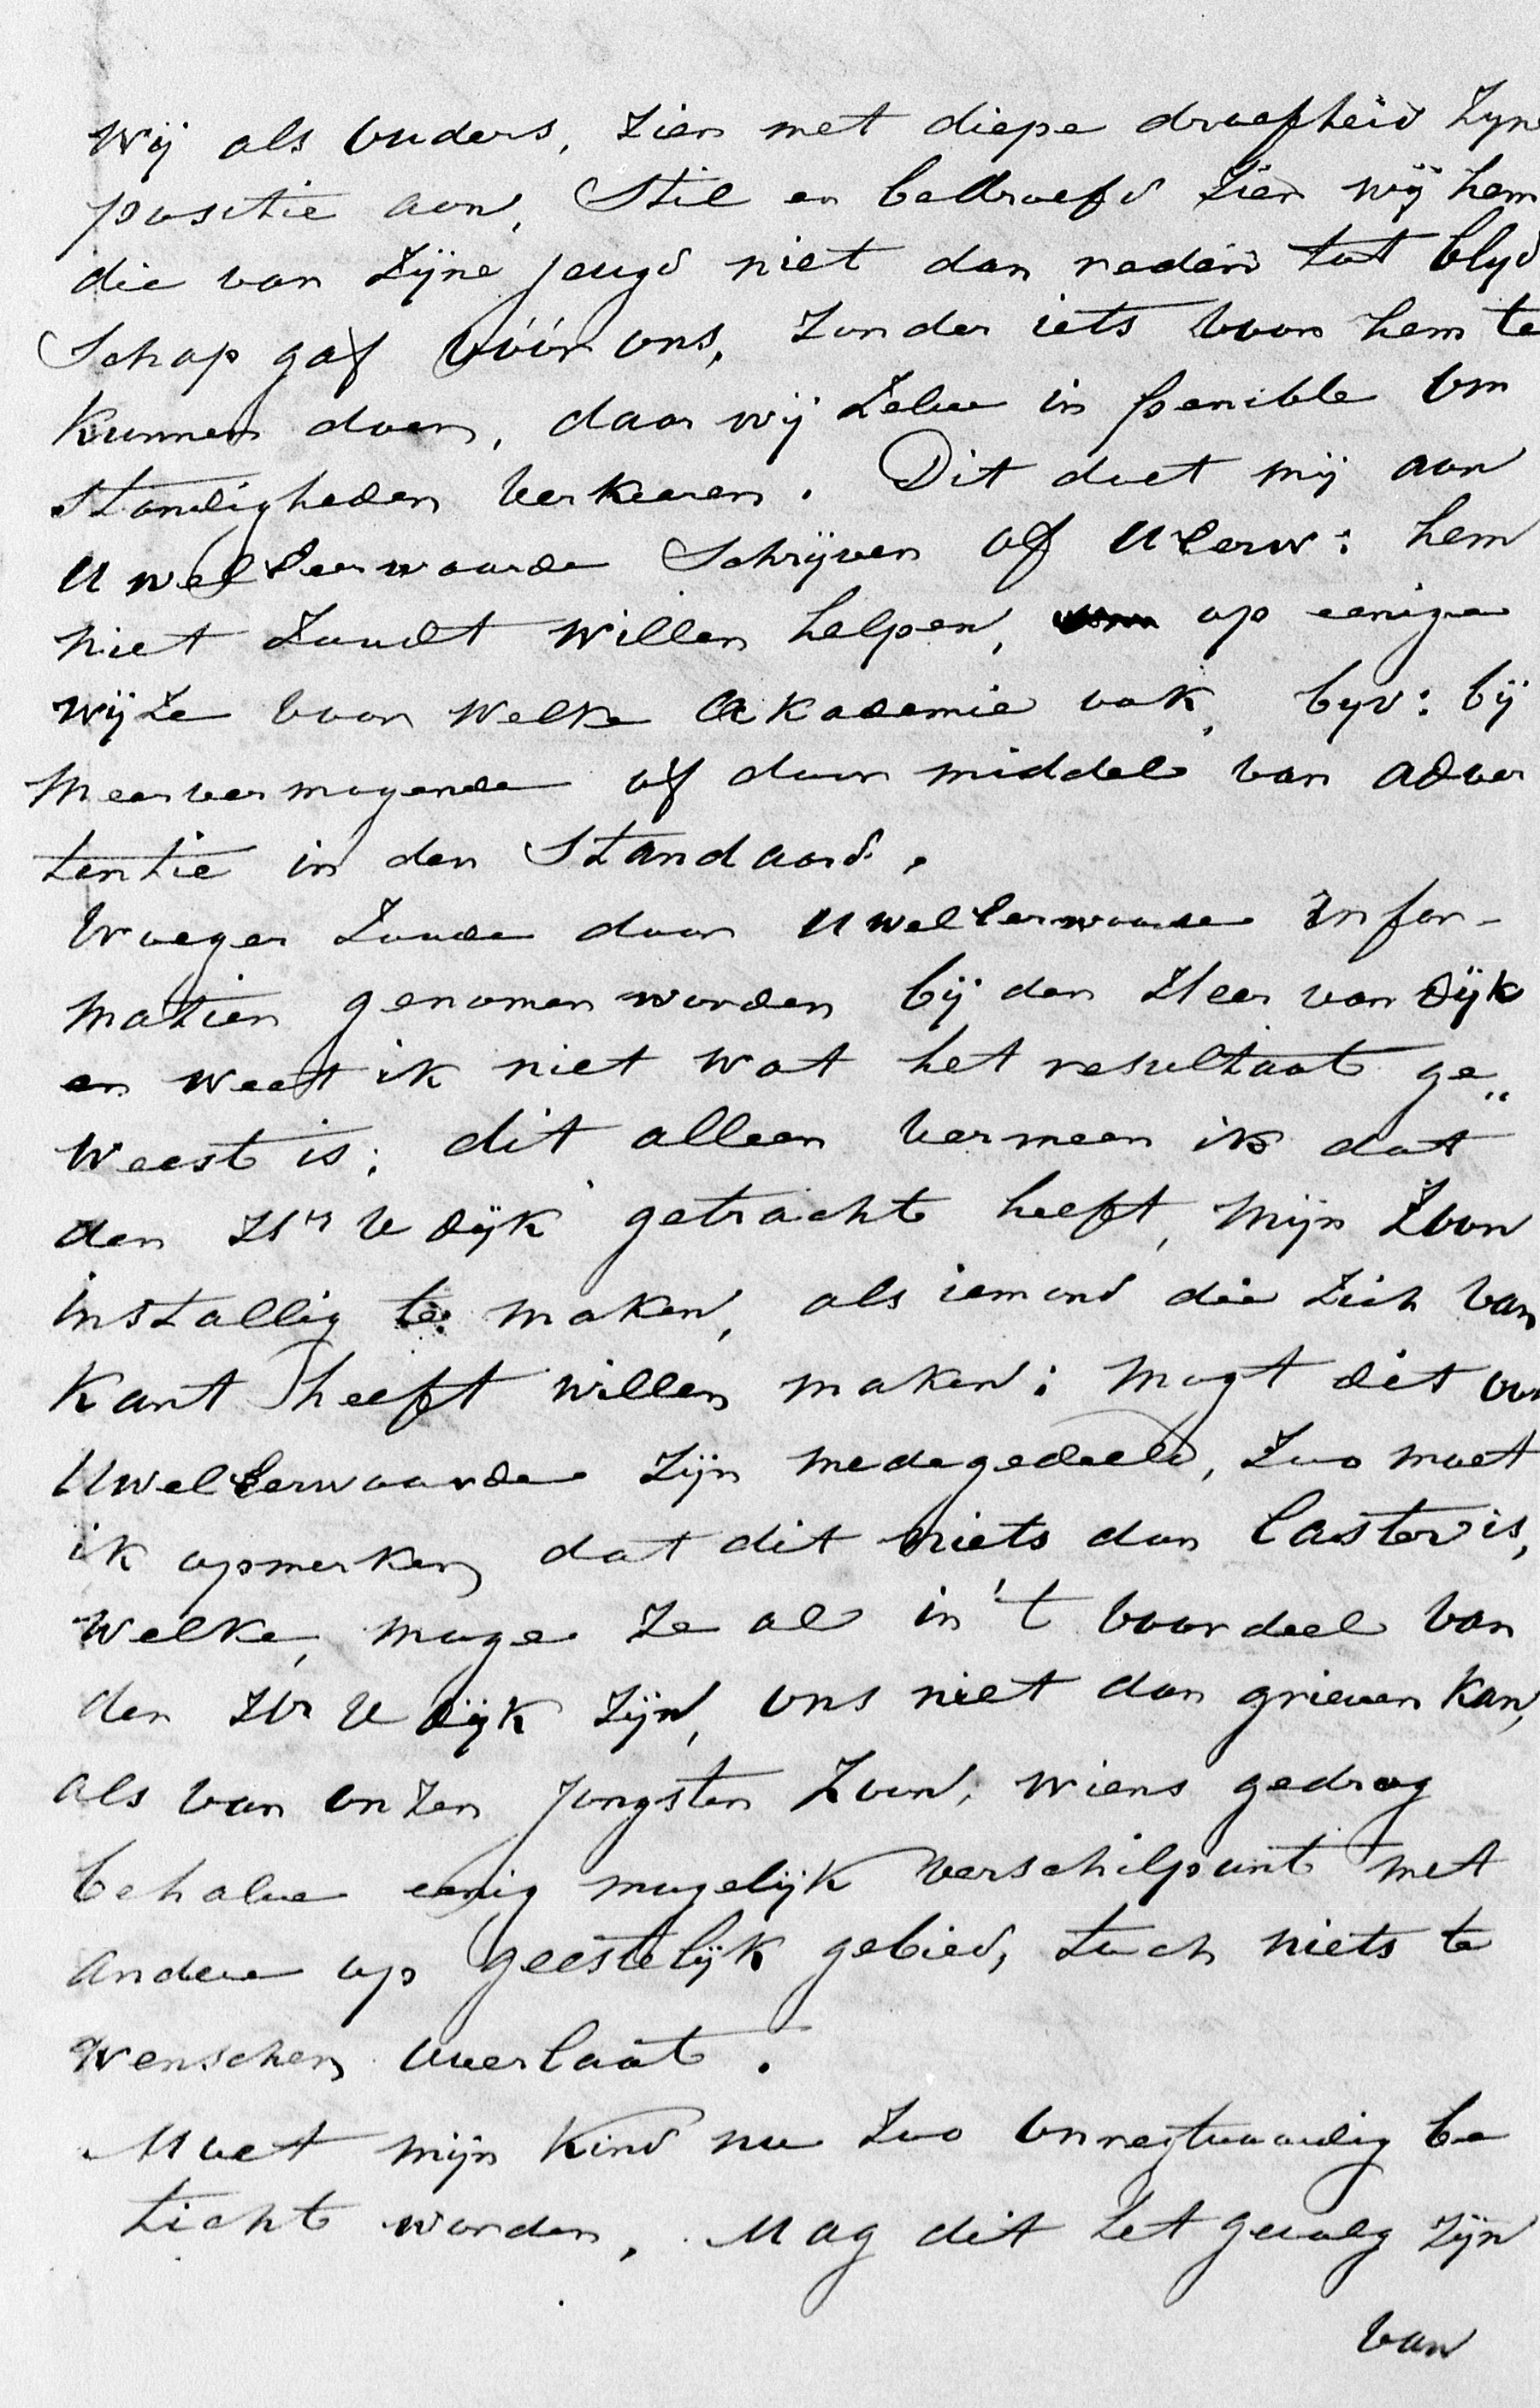 Wij als Ouders, zien met diepe droefheid Zyne
positie aan, Stil en bedroefd zien wij hem
die van Zijne jeugd niet dan reden tot blyd
Schap gaf vóór ons, zonder iets voor hem te
Kunnen doen, daar wij Zelve in penible om
standigheden verkeeren. Dit doet mij aan
UwelEerwaarde Schrijven of UEerw: hem
niet Zoudt willen helpen, op eenige
wijze voor welke Akademie ook, byv: bij
Meervermogende of door middel van adver
tentie in den Standaard.
Vroeger Zoude door UwelEerwaarde Infor-
matien genomen worden bij den Heer van Dijk
en weet ik niet wat het resultaat ge„
weest is; dit alleen vermeen ik dat
den Hr V Dijk getracht heeft, Mijn Zoon
installig te maken, als iemand die zich van
Kant heeft willen maken; mogt dit ook
UwelEerwaarde Zijn medegedeeld, Zoo moet
ik opmerken dat dit niets dan laster is,
Welke, moge Ze al in 't voordeel van
den Hr V Dijk Zijn, ons niet dan grieven Kan,
als van onzen Jongsten Zoon, wiens gedrag
behalve eenig mogelijk verschilpunt met
andere op geestelijk gebied, toch niets te
wenschen overlaat.
Moet mijn Kind nu Zoo onregtvaardig be
ticht worden, Mag dit het gevolg zijn
van